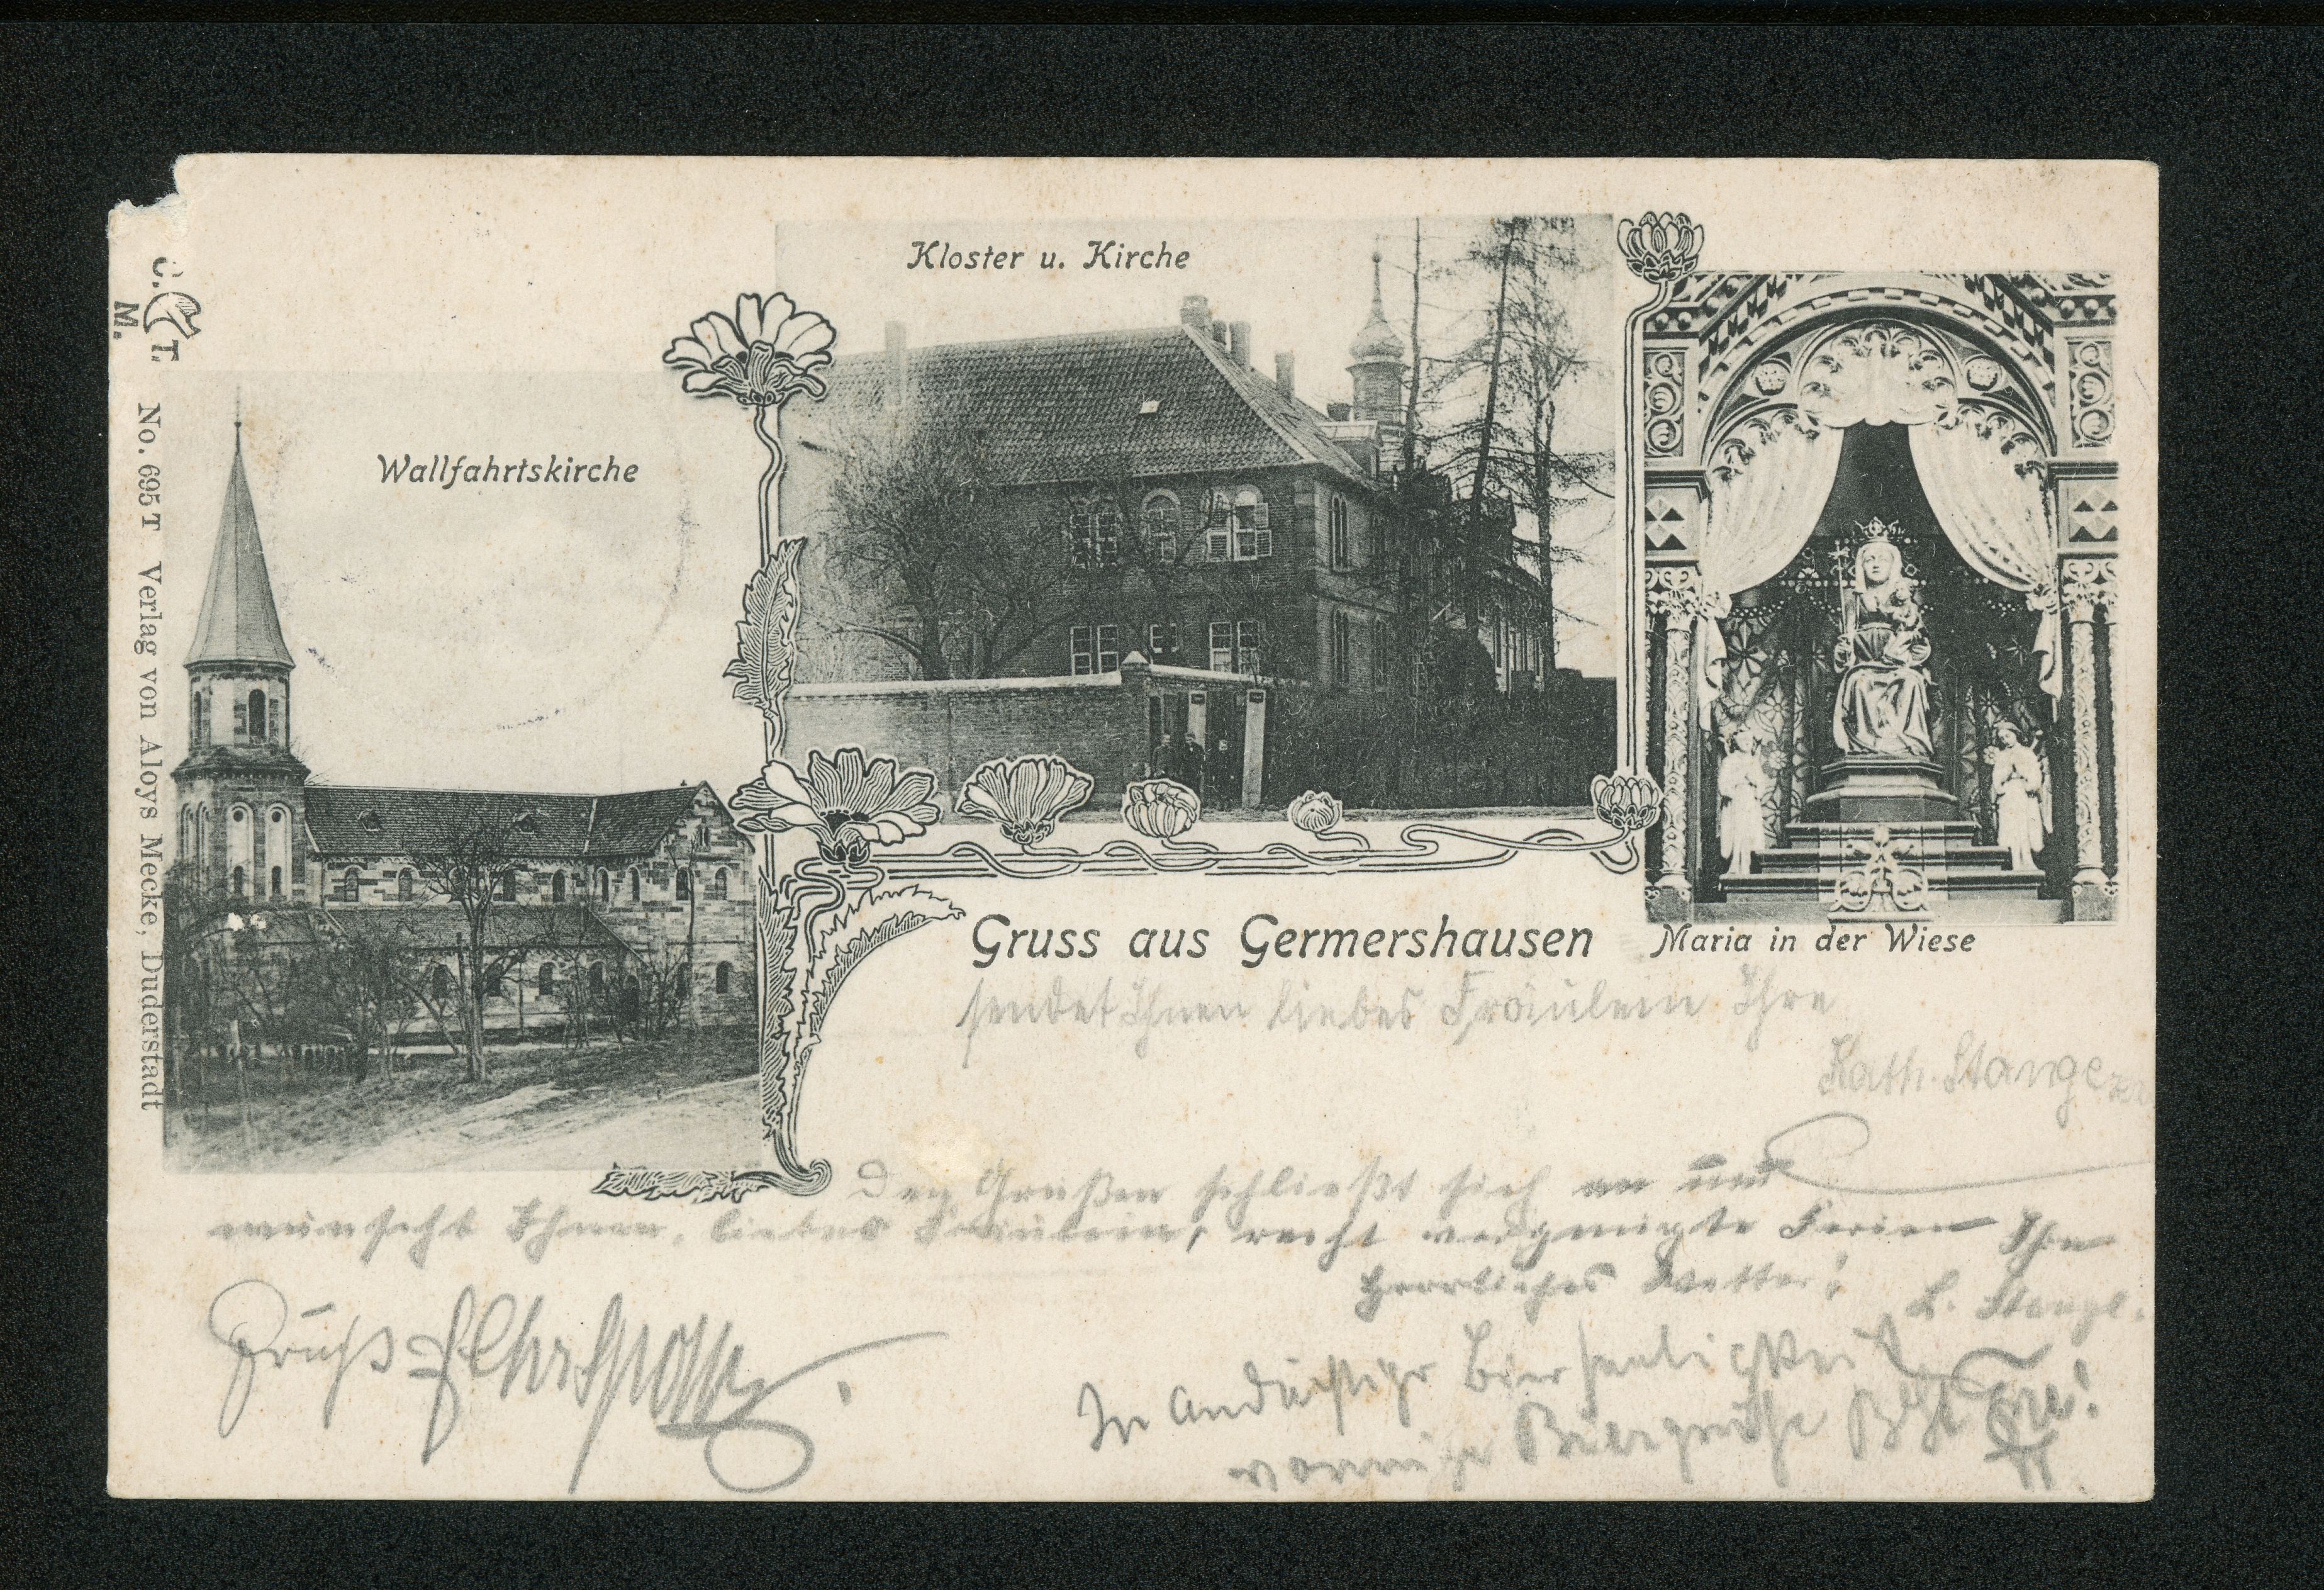 Kloster u. Kirche
Wallfahrtskirche
C. T.
M.
No. 695 T Verlag von Aloys Mecke, Duderstadt
Gruss aus Germershausen
Maria in der Wiese
sendet Ihnen liebes Fräulein Ihre
Kath. Stange
Den Grüßen schließt sich an und
wünscht Ihnen, liebes Fräulein, recht vergnügte Ferien Ihr
Herrliches Wetter!
L. Stange.
Gruß
In andächtiger Bierseeligkeit